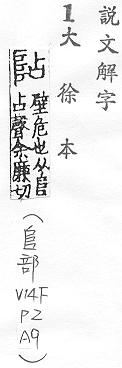 説文解字
1大徐本
阽 壁危也从𨸏
占聲余廉切
(𨸏部 V14F P2 A9)